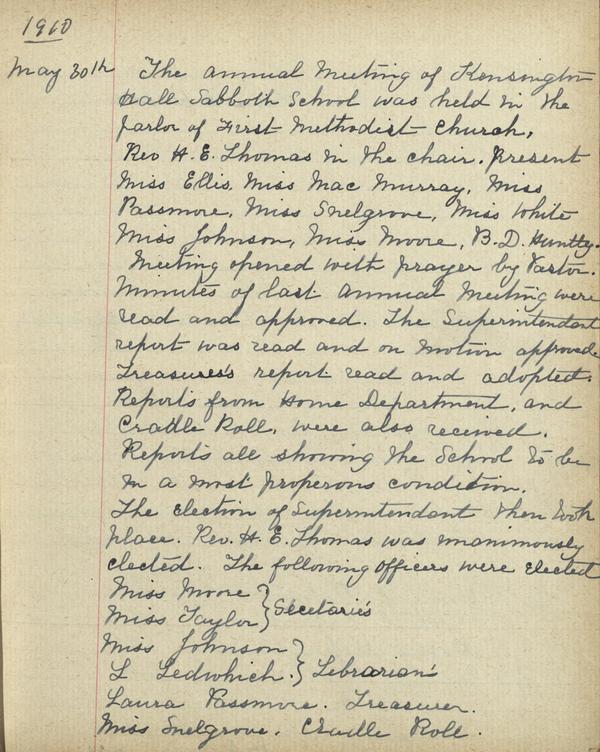 1910
May 30th The annual Meeting of Kensington
Hall Sabboth School was held in the
parlor of First Methodist Church,
Rev H. E. Thomas in the chair. present
Miss Ellis, Miss Mac Murray, Miss
Passmore, Miss Snelgrove, Miss White
Miss Johnson, Miss Moore, B. D. Huntley.
Meeting opened with prayer by Pastor.
Minutes of last annual Meeting were
read and approved. The Superintendant
report was read and on motion approved.
Treasures's report read and adopted.
Reports from Home Department, and
Cradle Roll, were also received.
Reports all showing the School to be
in a most properons condition.
The election of Superintendant then took
place. Rev. H. E. Thomas was unanimously
elected. The following officers were elected
Miss Moore
Miss Taylor } Secetaries
Miss Johnson
L Ledwhich. } Librarians
Laura Passmore. Treasurer.
Miss Snelgrove. Cradle Roll.